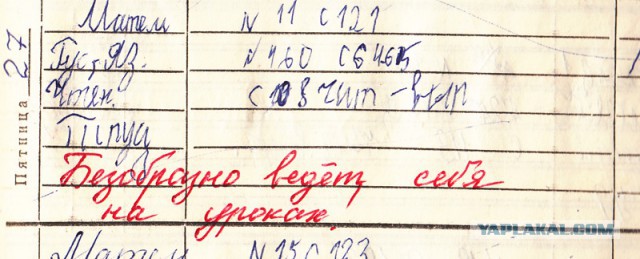 Пятница 27
Матем N 11 С 121
Рус, Яз. N 460
Чтен. С 108 чит - выр
Труд
Безобразно ведёт себя
на уроках.
YAPLAKAL.COM
Матем N 15 С 123